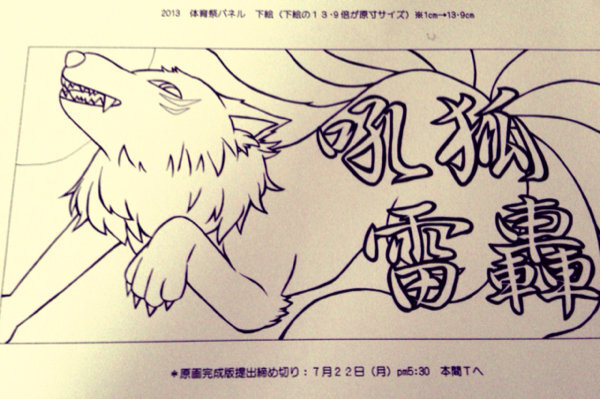 2013　体育祭パネル　下絵（下絵の１３・９倍が原寸サイズ）※1cm→13・9cm
吼狐
雷轟
＊原画完成版提出締め切り：７月２２日（月）pm5:30　本間Ｔへ